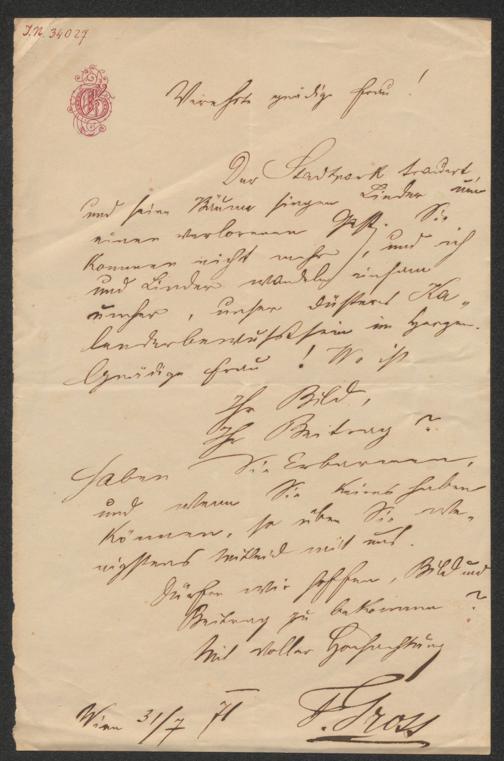 J.N. 34029
G
Verehrte gnädige Frau!
Der Stadtpark trauert
und seine Bäume singen Lieder um
einen verlorenen Gast. Sie
kommen nicht mehr, und ich
und Linder wandeln einsam
umher, unser düsteres Ka-
lenderbewußtsein im Herzen.
Gnädige Frau! Wo ist
Ihr Bild,
Ihr Beitrag?
Haben Sie Erbarmen,
und wenn Sie keines haben
können, so üben Sie we-
nigstens Mitleid mit uns.
Dürfen wir hoffen, Bild und
Beitrag zu bekommen?
Mit voller Hochachtung
F. Gross
Wien 31/7 71